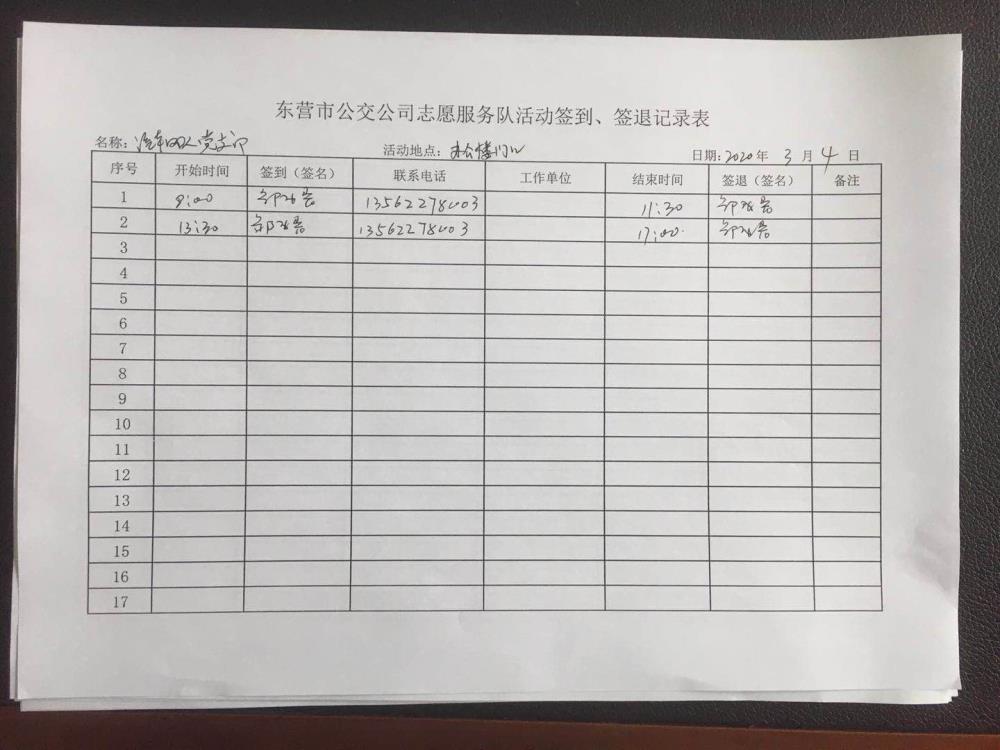 东营市公交公司志愿服务队活动签到、签退记录表
名称：汽车 党支部 活动地点：办公楼门口 日期：2020年 3 月 4 日
序号 开始时间 签到（签名） 联系电话 工作单位 结束时间 签退（签名） 备注
1 9:00 13562278003 11:30
2 13:30 13562278003 17:00
3
4
5
6
7
8
9
10
11
12
13
14
15
16
17